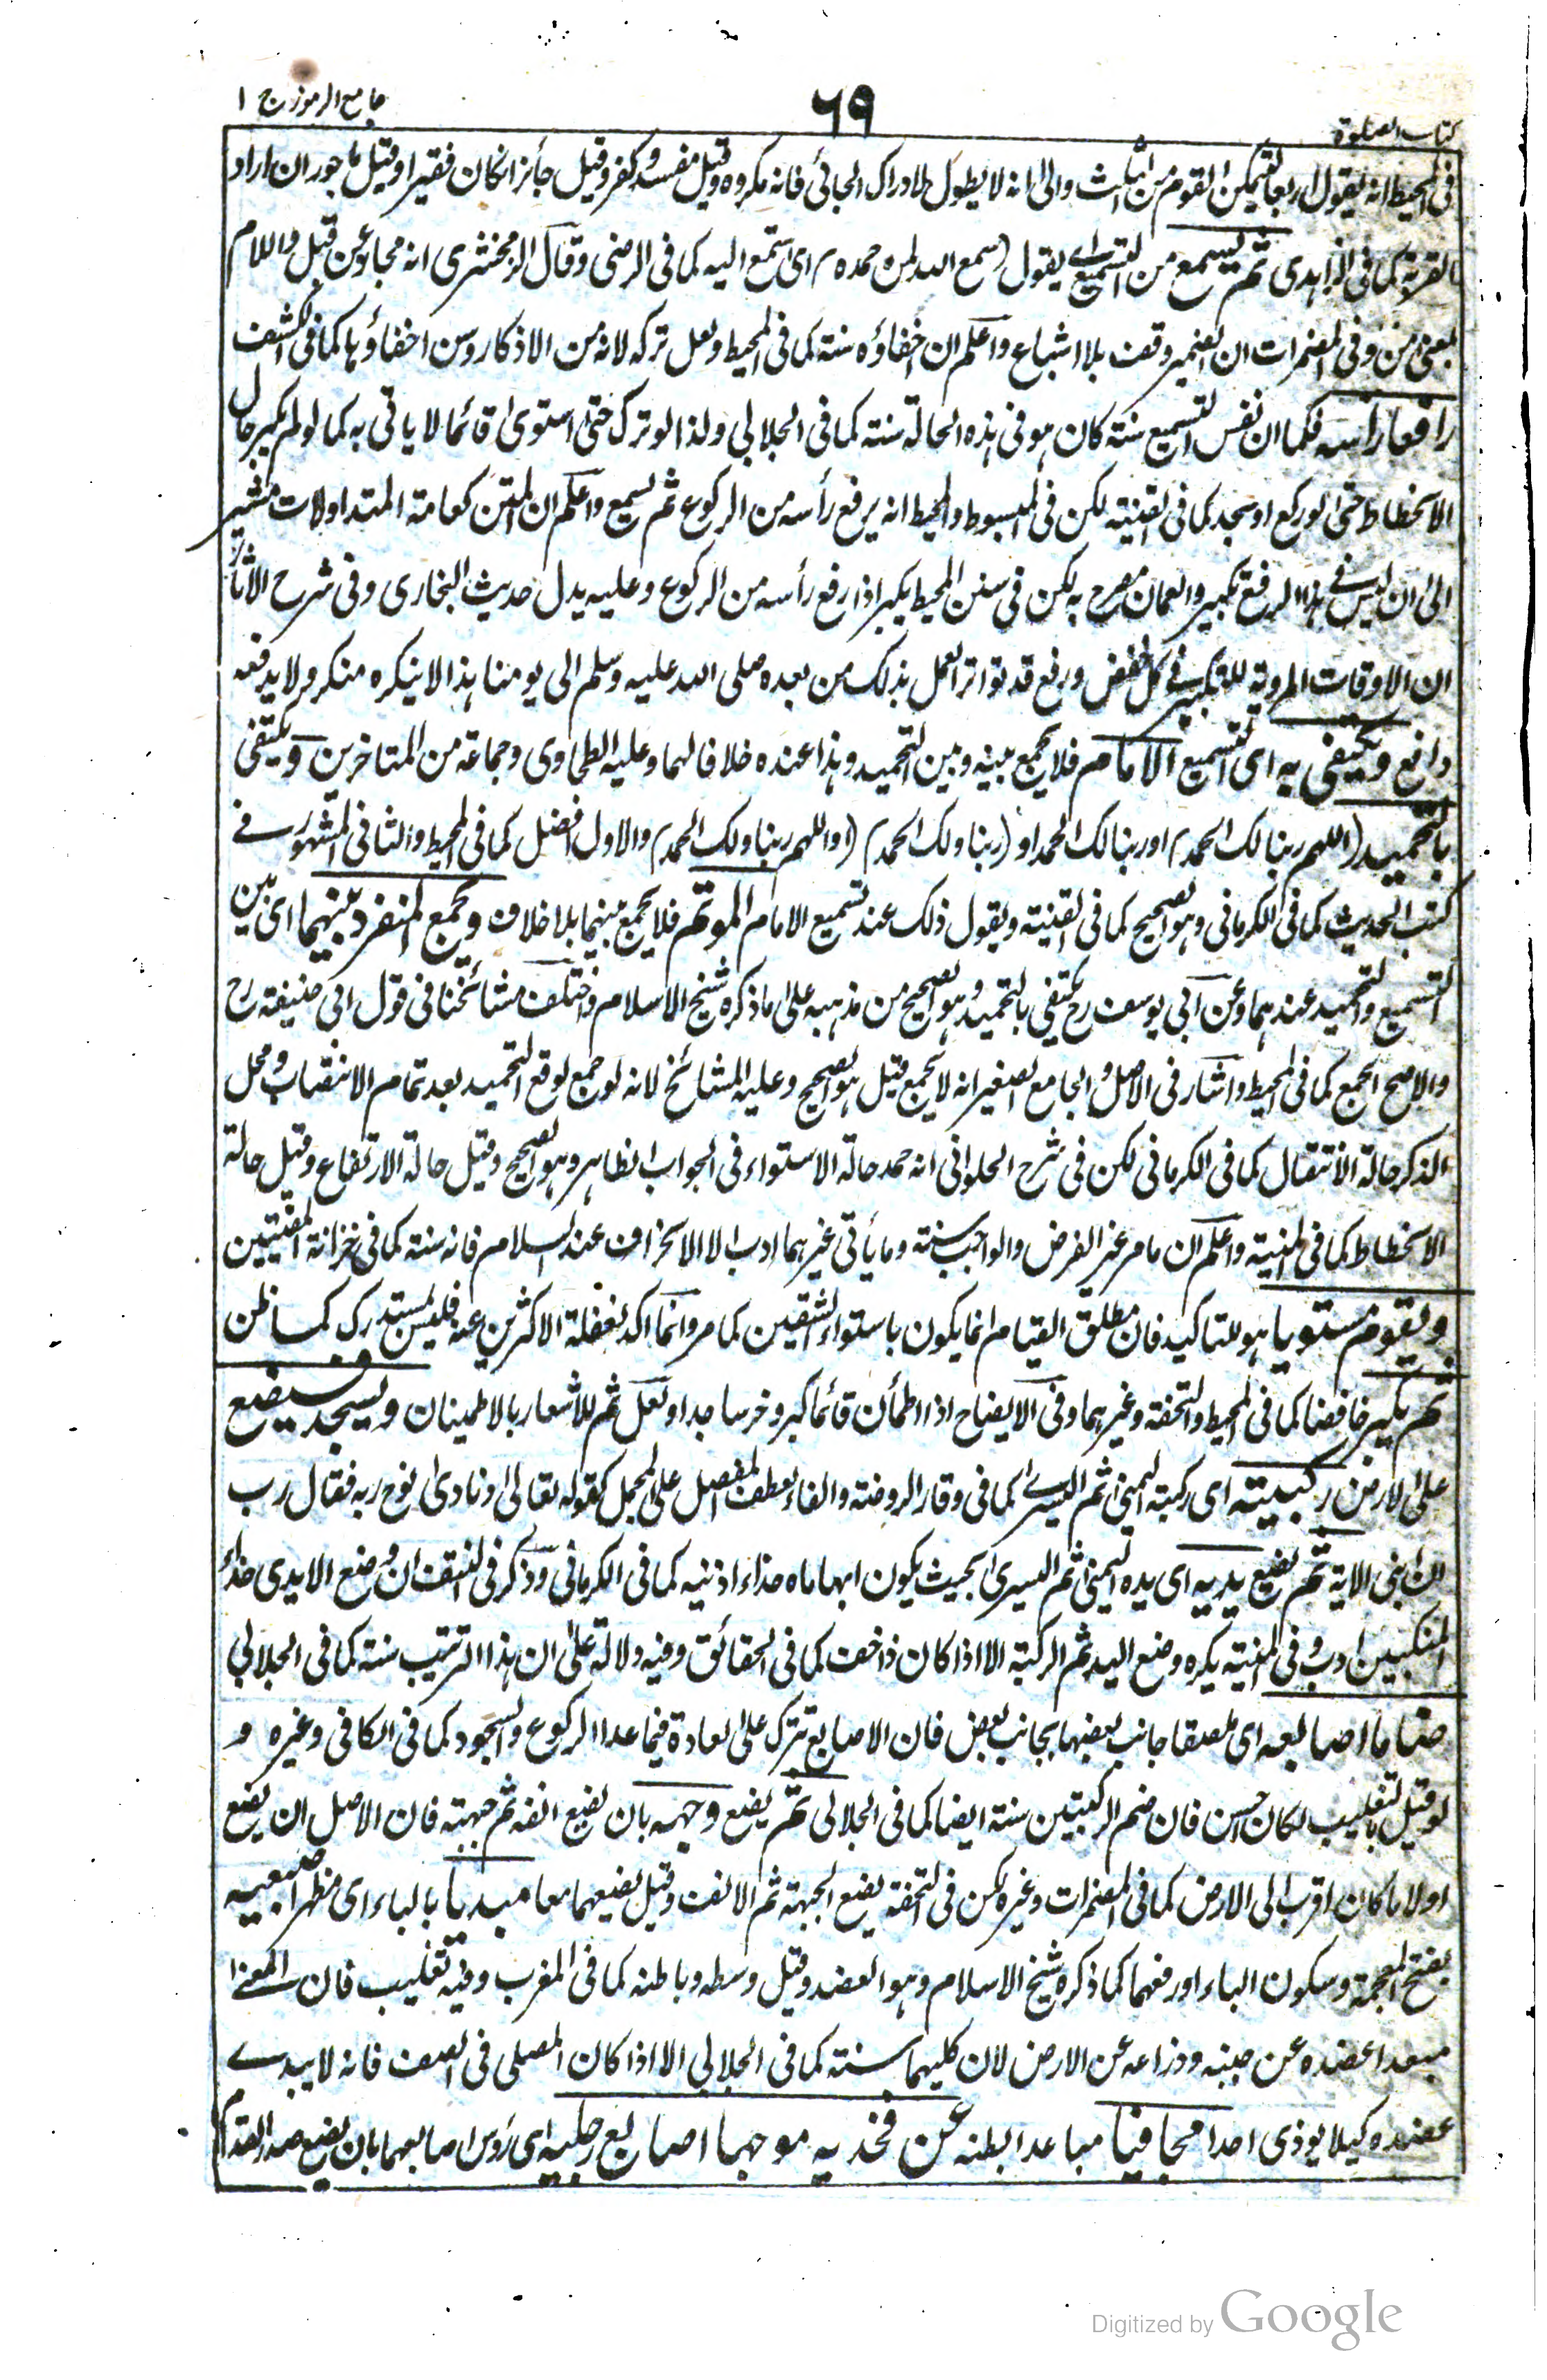 كتاب الصلوة
٦٩
جامع الرموز ج ١
فى المحيط انه يقول اربعا ليتمكن القوم من الثلث والى انه لا يطول لادراك الجائى فانه مكروه وقيل مفسد وكفر وقيل جائز انكان فقيرا وقيل ماجور ان اراد
القربة كما فى الزاهدى ثم يسمع من التسميع اى يقول (سمع الله لمن حمده) اى استمع اليه كما فى الرضى وقال الزمخشرى انه مجاز عن قبل واللام
بمعنى من وفى المضمرات ان الضمير وقف بلا اشباع واعلم ان اخفاؤه سنة كما فى المحيط ولعل تركه لانه من الاذكار وسن اخفاؤها كما فى الكشف
رافعا رأسه فكما ان نفس التسميع سنة كان هو فى هذه الحالة سنة كما فى الجلالى ولذا لو ترك حتى استوى قائما لا ياتى به كما لو لم يكبر حال
الانحطاط حتى لو ركع او سجد كما فى القنية لكن فى المبسوط والمحيط انه يرفع رأسه من الركوع ثم يسمع واعلم ان المتن كعامة المتداولات مشير
الى ان ليس فى هذا الرفع تكبير والعمان مصرح به لكن فى سنن المحيط يكبر اذا رفع رأسه من الركوع وعليه يدل حديث البخارى وفى شرح الآثار
ان الاوقات المروية للتكبير فى كل خفض ورفع قد تواتر العمل بذلك من بعده صلى الله عليه وسلم الى يومنا هذا لا ينكره منكر ولا يدفعه
دافع ويكتفى به اى التسميع الامام فلا يجمع بينه وبين التحميد وهذا عنده خلافا لهما وعليه الطحاوى وجماعة من المتاخرين ويكتفى
بالتحميد (اللهم ربنا لك الحمد) او ربنا لك الحمد او (ربنا ولك الحمد) (او اللهم ربنا ولك الحمد) والاول افضل كما فى المحيط والثانى المشهور فى
كتب الحديث كما فى الكرمانى وهو الصحيح كما فى القنية ويقول ذلك عند تسميع الامام الموتم فلا يجمع بينهما بلا خلاف ويجمع المنفرد بينهما اى بين
التسميع والتحميد عندهما وعن ابى يوسف رح يكتفى بالتحميد وهو الصحيح من مذهبه على ما ذكره شيخ الاسلام واختلف مشائخنا فى قول ابى حنيفة رح
والاصح الجمع كما فى المحيط واشار فى الاصل والجامع الصغير انه لا يجمع قيل هو الصحيح وعليه المشائخ لانه لو جمع لوقع التحميد بعد تمام الانتصاب ومحل
الذكر حالة الانتقال كما فى الكرمانى لكن فى شرح الحلوانى انه حمد حالة الاستواء فى الجواب الظاهر وهو الصحيح وقيل حالة الارتفاع وقيل حالة
الانحطاط كما فى المنية واعلم ان ما مر غير الفرض والواجب سنة وما يأتى غيرهما ادب الا الانحراف عند السلام فانه سنة كما فى خزانة المفتيين
ويقوم مستويا هو للتاكيد فان مطلق القيام انما يكون باستواء الشقين كما مر وانما اكد لغفلة الاكثرين عنه فليس بمستدرك كما ظن
ثم يكبر خافضا كما فى المحيط والتحفة وغيرهما وفى الايضاح اذا اطمأن قائما كبر وخر ساجدا ولعل ثم للاشعار بالاطمينان ويسجد فيضع
على الارض ركبتيه اى ركبته اليمنى ثم اليسرى كما فى وقار الروضة والفاء لعطف المفصل على المجمل كقوله تعالى ونادى نوح ربه فقال رب
ان ابنى الاية ثم يضع يديه اى يده اليمنى ثم اليسرى بحيث يكون ابهاماه حذاء اذنيه كما فى الكرمانى وذكر فى النتف ان وضع الايدى حذاء
المنكبين ادب وفى المنية يكره وضع اليد ثم الركبة الا اذا كان ذا خف كما فى الحقائق وفيه دلالة على ان هذا الترتيب سنة كما فى الجلالى
ضاما اصابعه اى ملصقا جانب بعضها بجانب بعض فان الاصابع تترك على العادة فيما عدا الركوع والسجود كما فى الكافى وغيره و
لو قيل بالتغليب لكان احسن فان ضم الركبتين سنة ايضا كما فى الجلالى ثم يضع وجهه بان يضع انفه ثم جبهته فان الاصل ان يضع
اولا ما كان اقرب الى الارض كما فى المضمرات وغيره لكن فى التحفة يضع الجبهة ثم الانف وقيل يضعهما معا مبديا بالباء اى مظهرا ضبعيه
بفتح المعجمة وسكون الباء او رفعهما كما ذكره شيخ الاسلام وهو العضد وقيل وسطه وباطنه كما فى المغرب وفيه تغليب فان المعنى
مبعدا عضده عن جنبه وذراعه عن الارض لان كليهما سنة كما فى الجلالى الا اذا كان المصلى فى الصف فانه لا يبدى
عضده كيلا يوذى احدا مجافيا مباعدا بطنه عن فخذيه موجها اصابع رجليه اى رؤس اصابعهما بان يضع صدر القدم
Digitized by Google